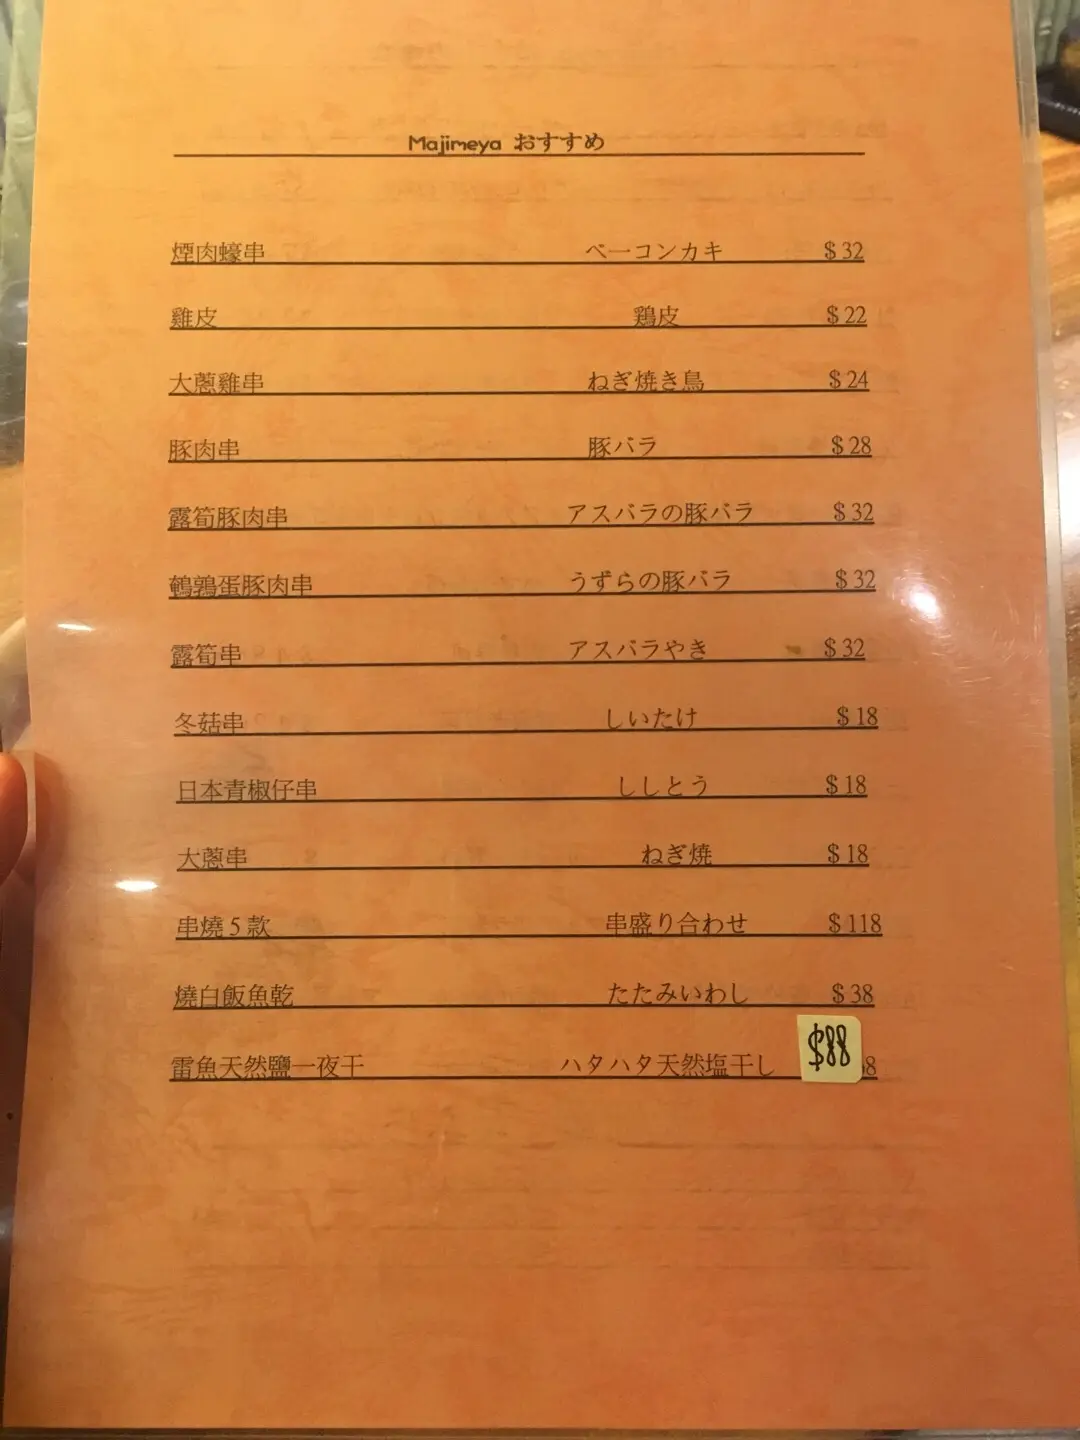 Majimeya おすすめ
煙肉蠔串 ベーコンカキ $32
雞皮 鶏皮 $22
大蔥雞串 ねぎ焼き鳥 $24
豚肉串 豚バラ $28
露筍豚肉串 アスバラの豚バラ $32
鵪鶉蛋豚肉串 うずらの豚バラ $32
露筍串 アスバラやき $32
冬菇串 しいたけ $18
日本青椒仔串 ししとう $18
大蔥串 ねぎ焼 $18
串燒5款 串盛り合わせ $118
燒白飯魚乾 たたみいわし $38
雷魚天然鹽一夜干 ハタハタ天然塩干し $88